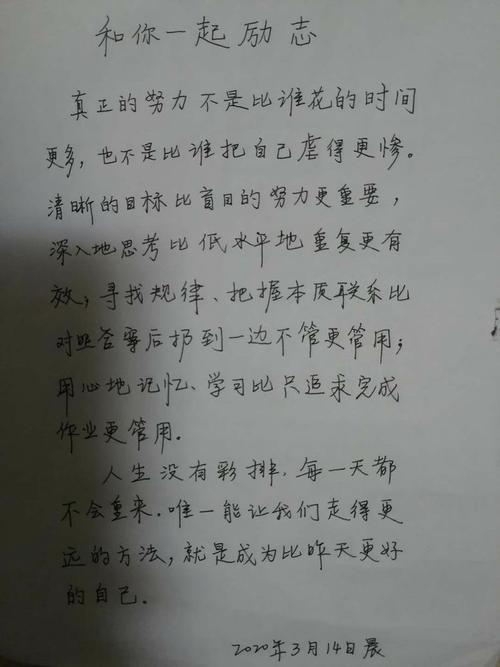 和你一起励志
真正的努力不是比谁花的时间
更多，也不是比谁把自己虐得更惨。
清晰的目标比盲目的努力更重要，
深入地思考比低水平地重复更有
效；寻找规律、把握本质联系比
对照答案后扔到一边不管更管用；
用心地记忆、学习比只追求完成
作业更管用。
人生没有彩排，每一天都
不会重来．唯一能让我们走得更
远的方法，就是成为比昨天更好
的自己．
2020年3月14日晨